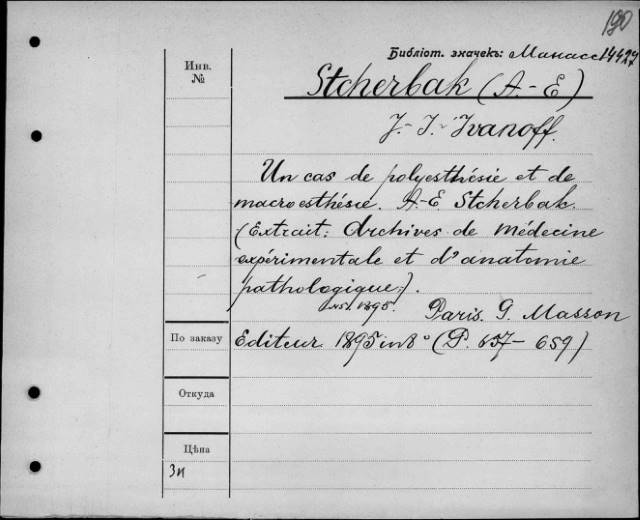 190
Библіот. значекъ: Манасс 14427
Инв.
№
Stcherbak (A.-E)
J.-J. Ivanoff.
Un cas de polyesthésie et de
macroesthésie. A.-E. Stcherbak.
(Extrait: Archives de Médecine
expérimentale et d'anatomie
pathologique).
№5. 1895.
Paris. G. Masson
По заказу
Editeur 1895 in 8° (P. 657-659)
Откуда
Цѣна
3и